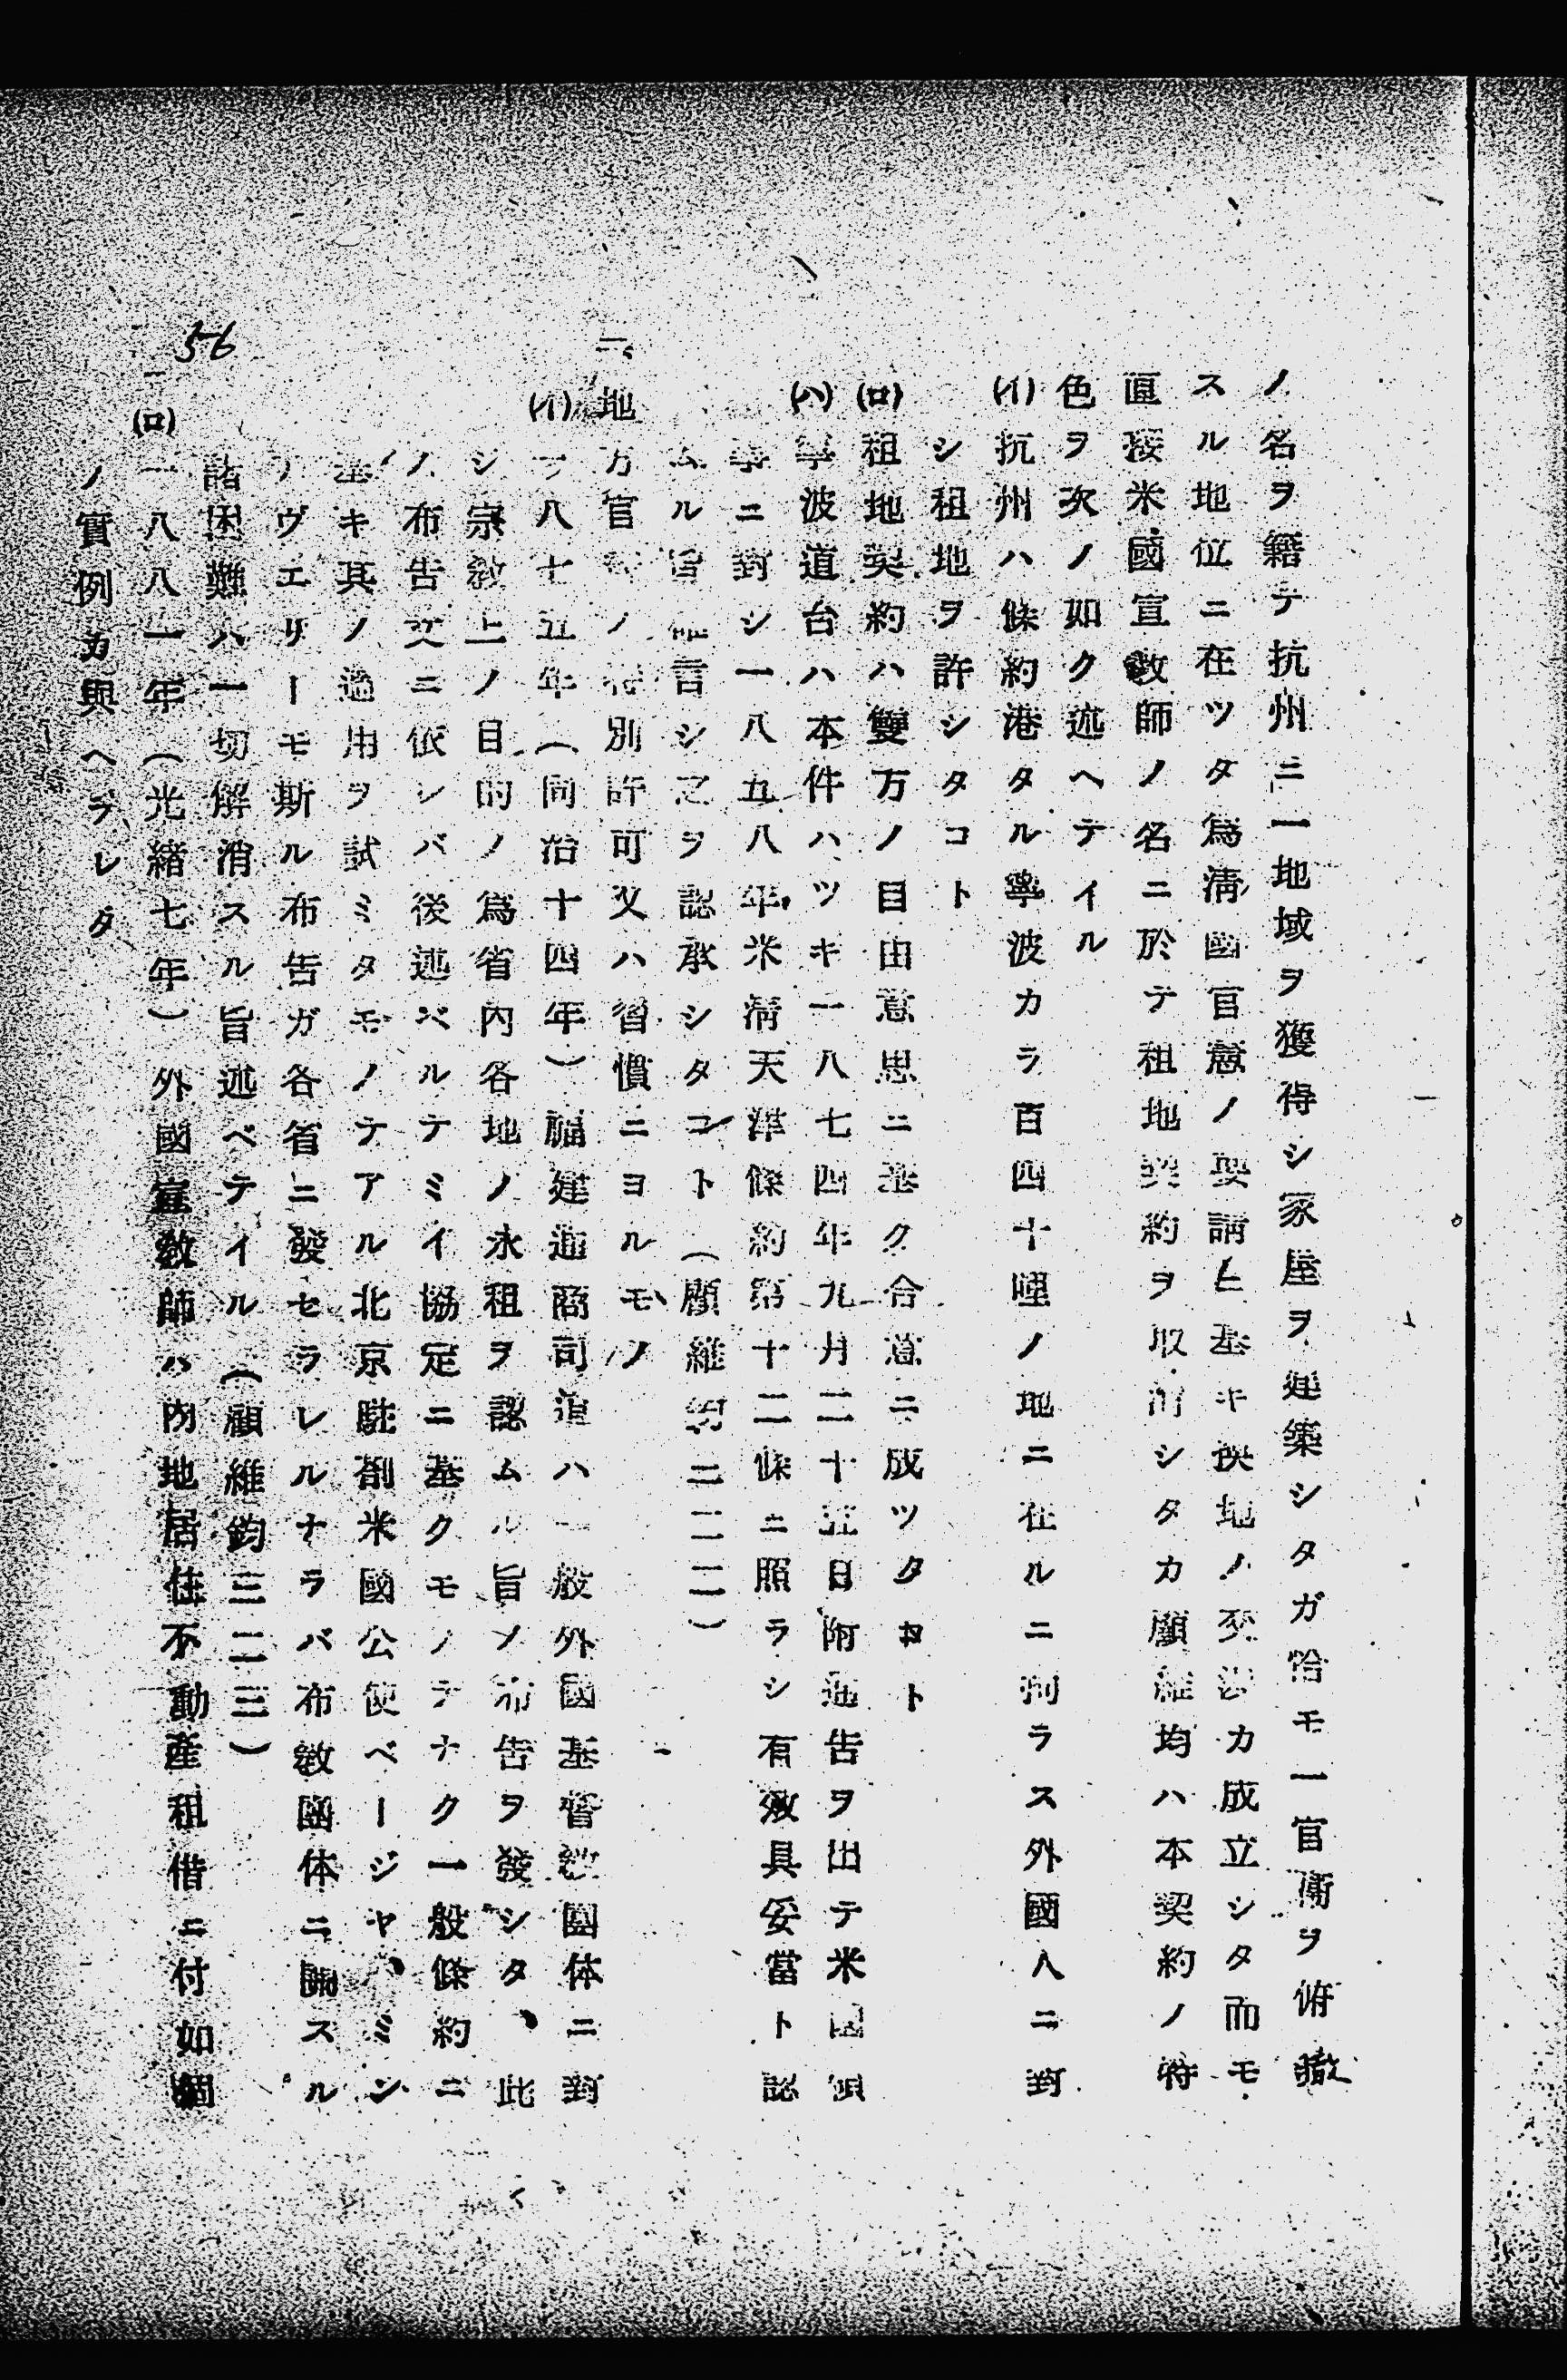 ノ名ヲ籍テ抗州ニ一地域ヲ獲得シ家屋ヲ建築シタガ恰モ一官衙ヲ俯瞰
スル地位ニ在ツタ為淸國官憲ノ要請ニ基キ換地ノ交渉カ成立シタ而モ
直接米國宣敎師ノ名ニ於テ租地契約ヲ取消シタカ顧維均ハ本契約ノ特
色ヲ次ノ如ク述ヘテイル
(イ)抗州ハ條約港タル寧波カラ百四十哩ノ地ニ在ルニ拘ラス外國人ニ對
シ租地ヲ許シタコト
(ロ)租地契約ハ雙方ノ自由意思ニ基ク合意ニ成ツタコト
(ハ)寧波道台ハ本件ハツキ一八七四年九月二十五日附通告ヲ出テ米國領
事ニ對シ一八五八年米淸天津條約第十二條ニ照ラシ有效具妥當ト認
ムル旨証言シ之ヲ認承シタコト(顧維鈞二二二)
二、地方官憲ノ特別許可又ハ習慣ニヨルモノ
(イ)一八七五年(同治十四年)福建通商司道ハ一般外國基督敎團体ニ對
シ宗敎上ノ目的ノ為省內各地ノ永租ヲ認ムル旨ノ布告ヲ發シタ、此
ノ布告文ニ依レバ後述ベルテミイ協定ニ基クモノテナク一般條約ニ
基キ其ノ適用ヲ試ミタモノテアル北京駐剳米國公使ベージヤ、ミン
アヴエリーモ斯ル布告ガ各省ニ發セラレルナラバ布敎團体ニ關スル
諸困難ハ一切解消スル旨述ベテイル(顧維鈞三二三)
(ロ)一八八一年(光緖七年)外國宣敎師ハ內地居住不動產租借ニ付如個
ノ實例カ與ヘラレタ
56